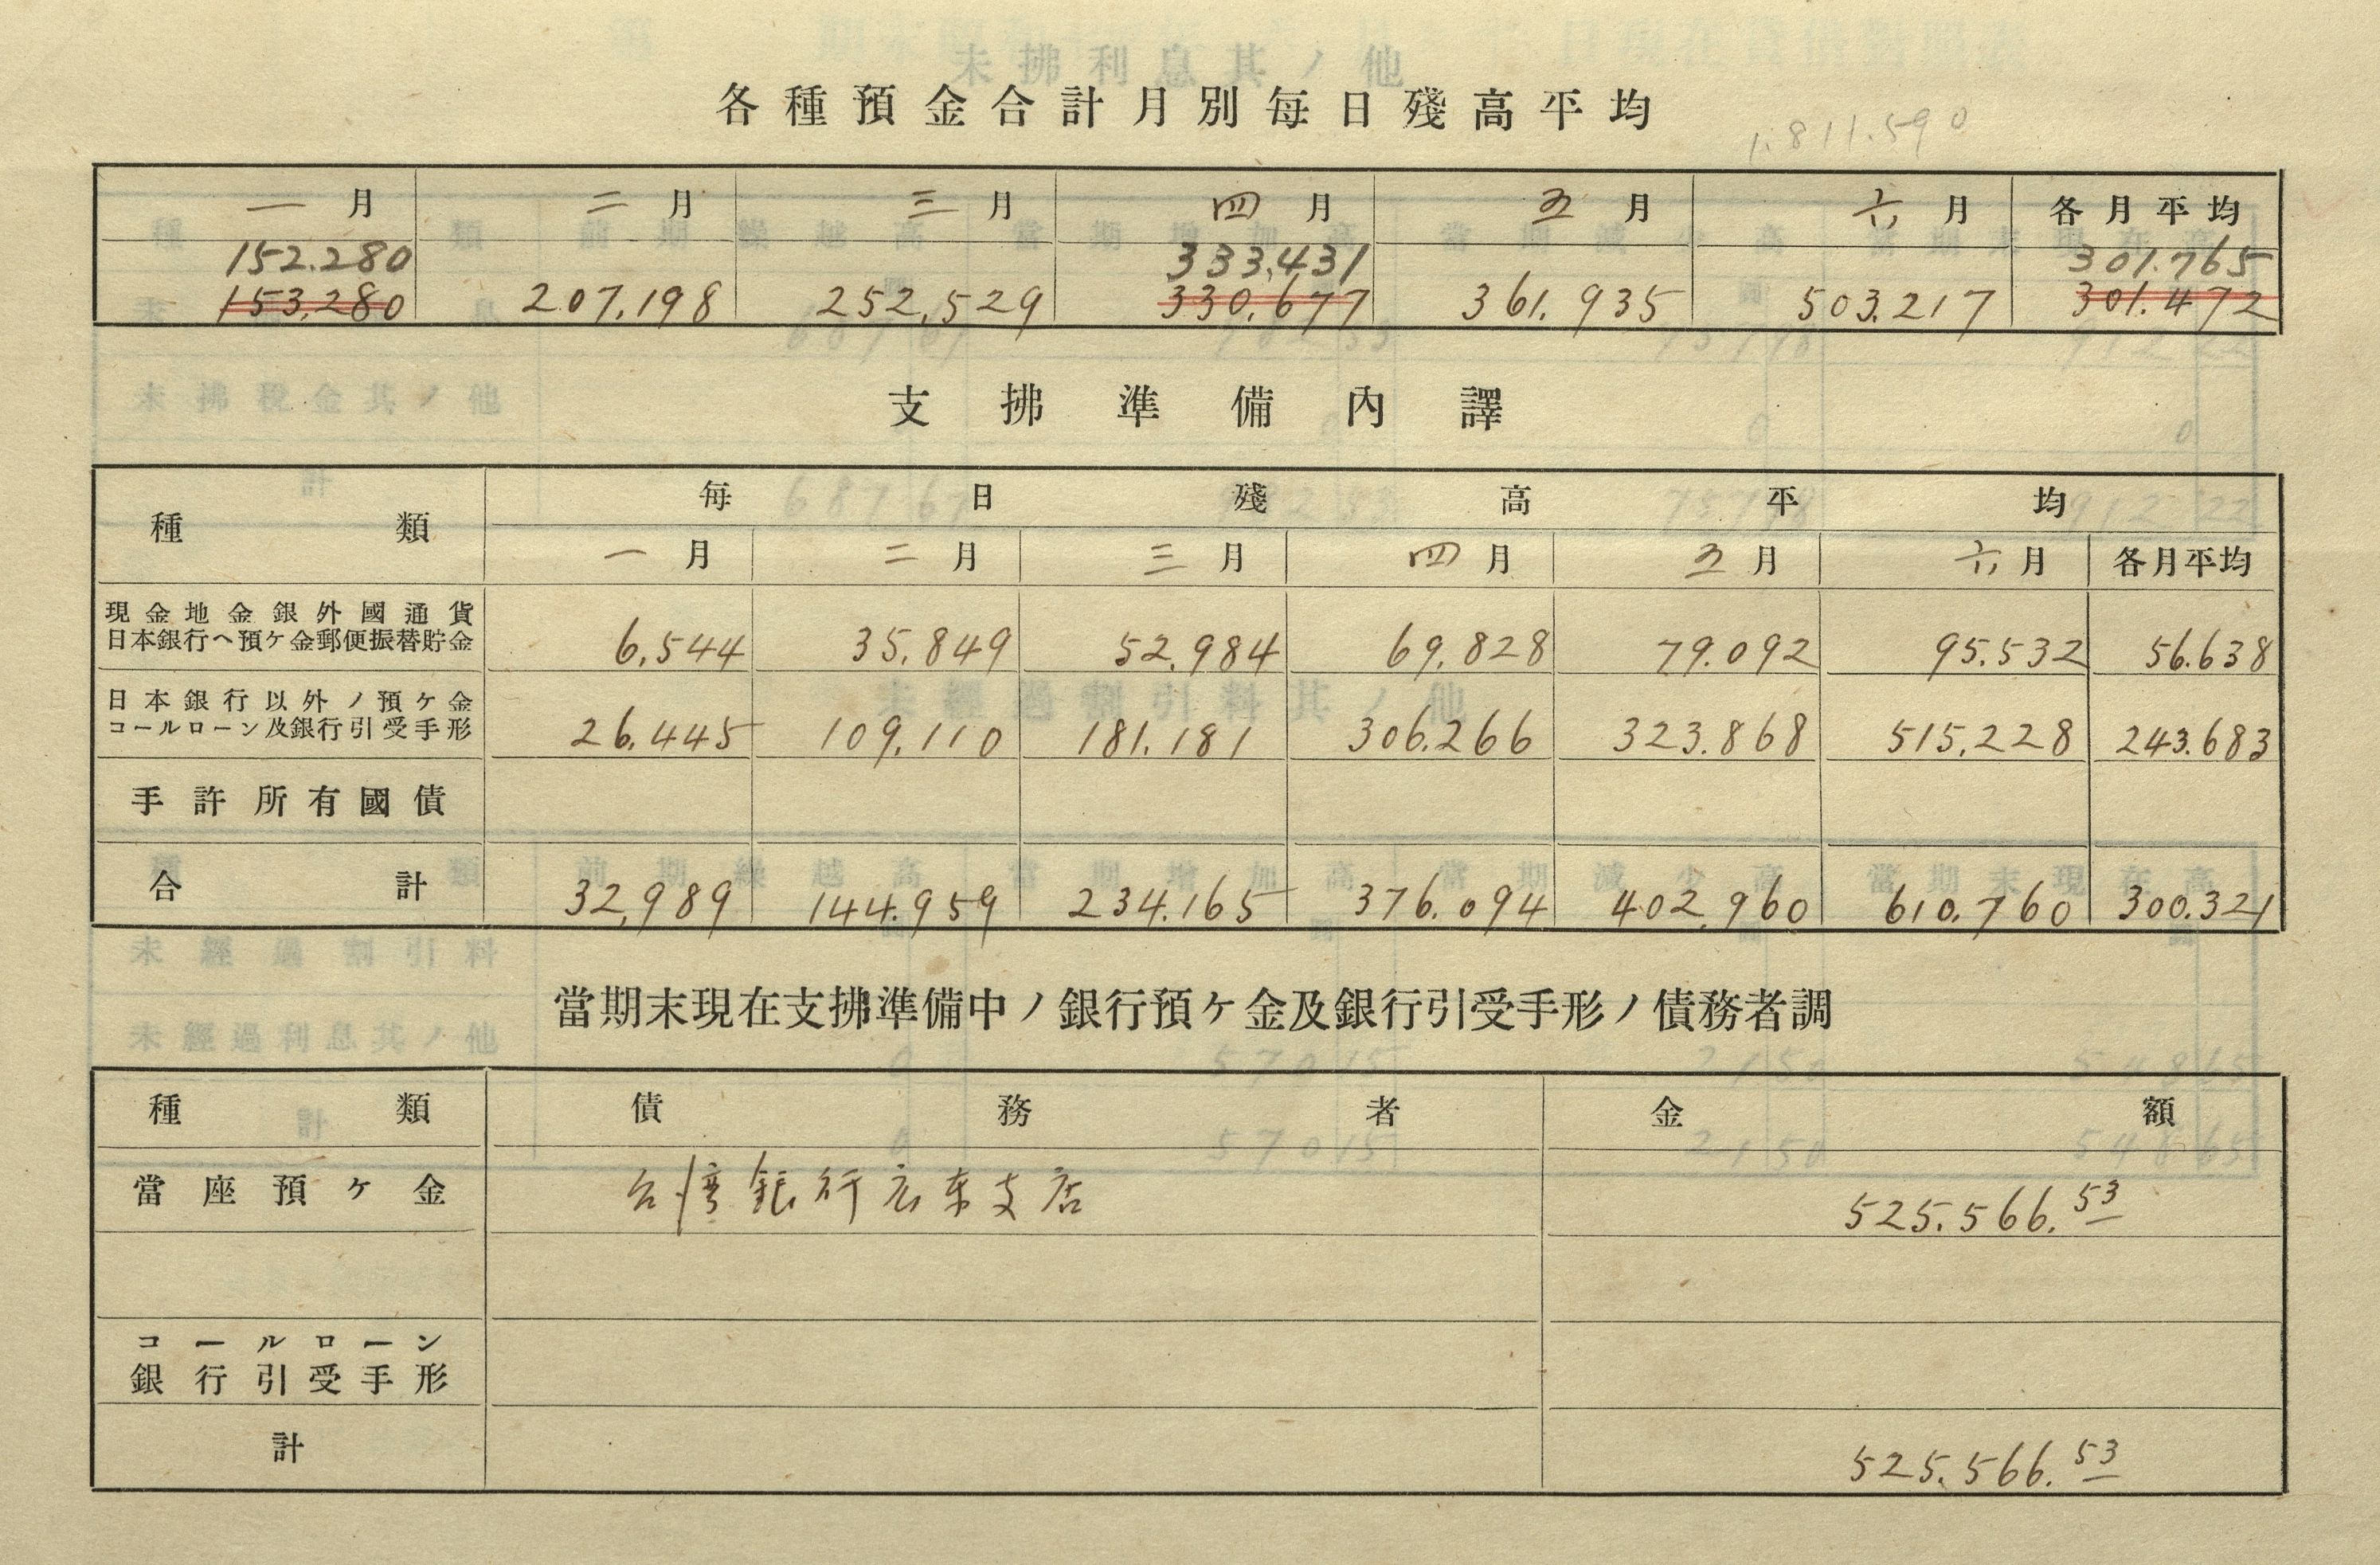 各種預金合計月別每日殘高平均
1.811.590
一月 二月 三月 四月 五月 六月 各月平均
152.280 333,431 301.765
153,280 207,198 252,529 330,677 361.935 503.217 301.472
支拂準備內譯
種類 每日殘高平均
一月 二月 三月 四月 五月 六月 各月平均
現金地金銀外國通貨
日本銀行ヘ預ケ金郵便振替貯金 6,544 35.849 52,984 69.828 79.092 95.532 56.638
日本銀行以外ノ預ケ金
コールローン及銀行引受手形 26.445 109.110 181.181 306.266 323.868 515.228 243.683
手許所有國債
合計 32,989 144.959 234.165 376.094 402,960 610.760 300.321
當期末現在支拂準備中ノ銀行預ケ金及銀行引受手形ノ債務者調
種類 債務者 金額
當座預ケ金 台湾銀行広東支店 525.566.53
コールローン
銀行引受手形
計 525.566.53